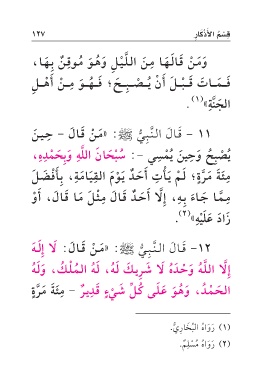 قِسْمُ الْأَذْكَارِ ١٢٧
وَمَنْ قَالَهَا مِنَ اللَّيْلِ وَهُوَ مُوقِنٌ بِهَا،
فَمَاتَ قَبْلَ أَنْ يُصْبِحَ؛ فَهُوَ مِنْ أَهْلِ
الجَنَّةِ» (١).
١١ - قَالَ النَّبِيُّ ﷺ: «مَنْ قَالَ - حِينَ
يُصْبِحُ وَحِينَ يُمْسِي -: سُبْحَانَ اللَّهِ وَبِحَمْدِهِ،
مِئَةَ مَرَّةٍ؛ لَمْ يَأْتِ أَحَدٌ يَوْمَ القِيَامَةِ، بِأَفْضَلَ
مِمَّا جَاءَ بِهِ، إِلَّا أَحَدٌ قَالَ مِثْلَ مَا قَالَ، أَوْ
زَادَ عَلَيْهِ» (٢).
١٢- قَالَ النَّبِيُّ ﷺ: «مَنْ قَالَ: لَا إِلَهَ
إِلَّا اللَّهُ وَحْدَهُ لَا شَرِيكَ لَهُ، لَهُ المُلْكُ، وَلَهُ
الحَمْدُ، وَهُوَ عَلَى كُلِّ شَيْءٍ قَدِيرٌ - مِئَةَ مَرَّةٍ
(١) رَوَاهُ البُخَارِيُّ.
(٢) رَوَاهُ مُسْلِمٌ.